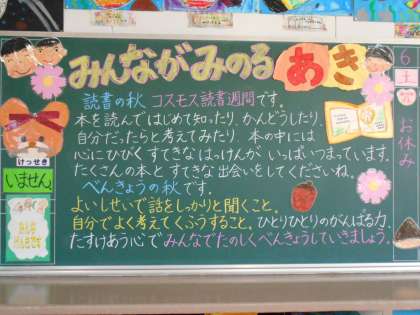 みんながみのる あき
読書の秋 コスモス読書週間です。
本を読んではじめて知ったり、かんどうしたり、
自分だったらと考えてみたり、本の中には
心にひびくすてきなはっけんがいっぱいつまっています。
たくさんの本とすてきな出会いをしてくださいね。
べんきょうの秋です。
よいしせいで話をしっかりと聞くこと。
自分でよく考えてくふうすること。ひとりひとりのがんばる力、
たすけあう心でみんなでたのしくべんきょうしていきましょう。
けっせき
いません
6
土
お休み